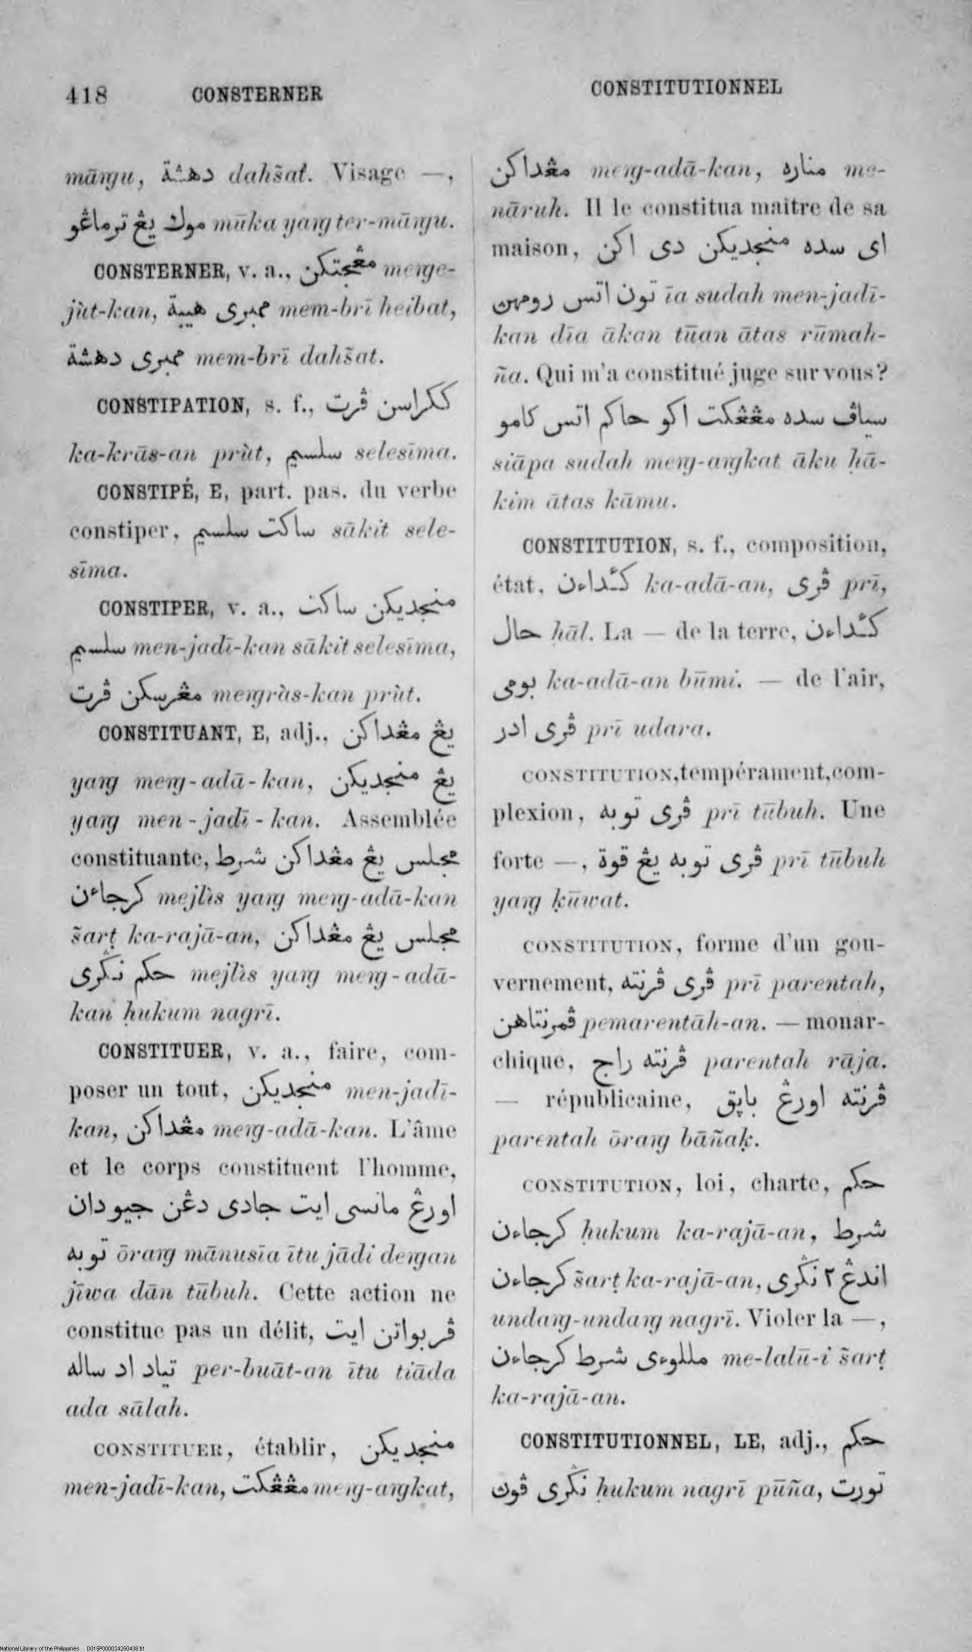 418 CONSTERNER CONSTITUTIONNEL
māngu, دهشة dahšat. Visage —,
موك يڠ ترماڠو mūka yang ter-māngu.
CONSTERNER, v. a., مڠجتكن menge-
jùt-kan, ممبري هيبة mem-brī heibat,
ممبري دهشة mem-brī dahšat.
CONSTIPATION, s. f., ككراسن ڤرت
ka-krās-an prùt, سلسيم selesīma.
CONSTIPÉ, E, part. pas. du verbe
constiper, ساكت سلسيم sākit sele-
sīma.
CONSTIPER, v. a., منجديكن ساكت
سلسيم men-jadī-kan sākit selesīma,
مڠرسكن ڤرت mengràs-kan prùt.
CONSTITUANT, E, adj., يڠ مڠداكن
yang meng-adā-kan, يڠ منجديكن
yang men-jadī-kan. Assemblée
constituante, مجلس يڠ مڠداكن شرط
كرجاءن mejlìs yang meng-adā-kan
šarṭ ka-rajā-an, مجلس يڠ مڠداكن
حكم نڬري mejlìs yang meng-adā-
kan ḥukum nagrī.
CONSTITUER, v. a., faire, com-
poser un tout, منجديكن men-jadī-
kan, مڠداكن meng-adā-kan. L'âme
et le corps constituent l'homme,
اورڠ مانسي ايت جادي دڠن جيودان
توبه ōrang mānusīa ītu jādi dengan
jīwa dān tūbuh. Cette action ne
constitue pas un délit, ڤربواتن ايت
تياد اد ساله per-buāt-an ītu tiāda
ada sālah.
CONSTITUER, établir, منجديكن
men-jadī-kan, مڠڠكت meng-angkat,
مڠداكن meng-adā-kan, مناره me-
nāruh. Il le constitua maître de sa
maison, اي سده منجديكن دي اكن
تون اتس رومهن īa sudah men-jadī-
kan dīa ākan tūan ātas rūmah-
ña. Qui m'a constitué juge sur vous?
سياڤ سده مڠڠكت اكو حاكم اتس كامو
siāpa sudah meng-angkat āku ḥā-
kim ātas kāmu.
CONSTITUTION, s. f., composition,
état, كئداءن ka-adā-an, ڤري prī,
حال hāl. La — de la terre, كئداءن
بومي ka-adā-an būmi. — de l'air,
ڤري ادر prī udara.
CONSTITUTION, tempérament, com-
plexion, ڤري توبه prī tūbuh. Une
forte —, ڤري توبه يڠ قوة prī tūbuh
yang ḳūwat.
CONSTITUTION, forme d'un gou-
vernement, ڤري ڤرنته prī parentah,
ڤمرنتاهن pemarentāh-an. — monar-
chique, ڤرنته راج parentah rāja.
— républicaine, ڤرنته اورڠ باڽق
parentah ōrang bāñaḳ.
CONSTITUTION, loi, charte, حكم
كرجاءن ḥukum ka-rajā-an, شرط
كرجاءن šarṭ ka-rajā-an, اندڠ٢ نڬري
undang-undang nagrī. Violer la —,
مللوءي شرط كرجاءن me-lalū-i šarṭ
ka-rajā-an.
CONSTITUTIONNEL, LE, adj., حكم
نڬري ڤون ḥukum nagrī pūña, تورت
National Library of the Philippines